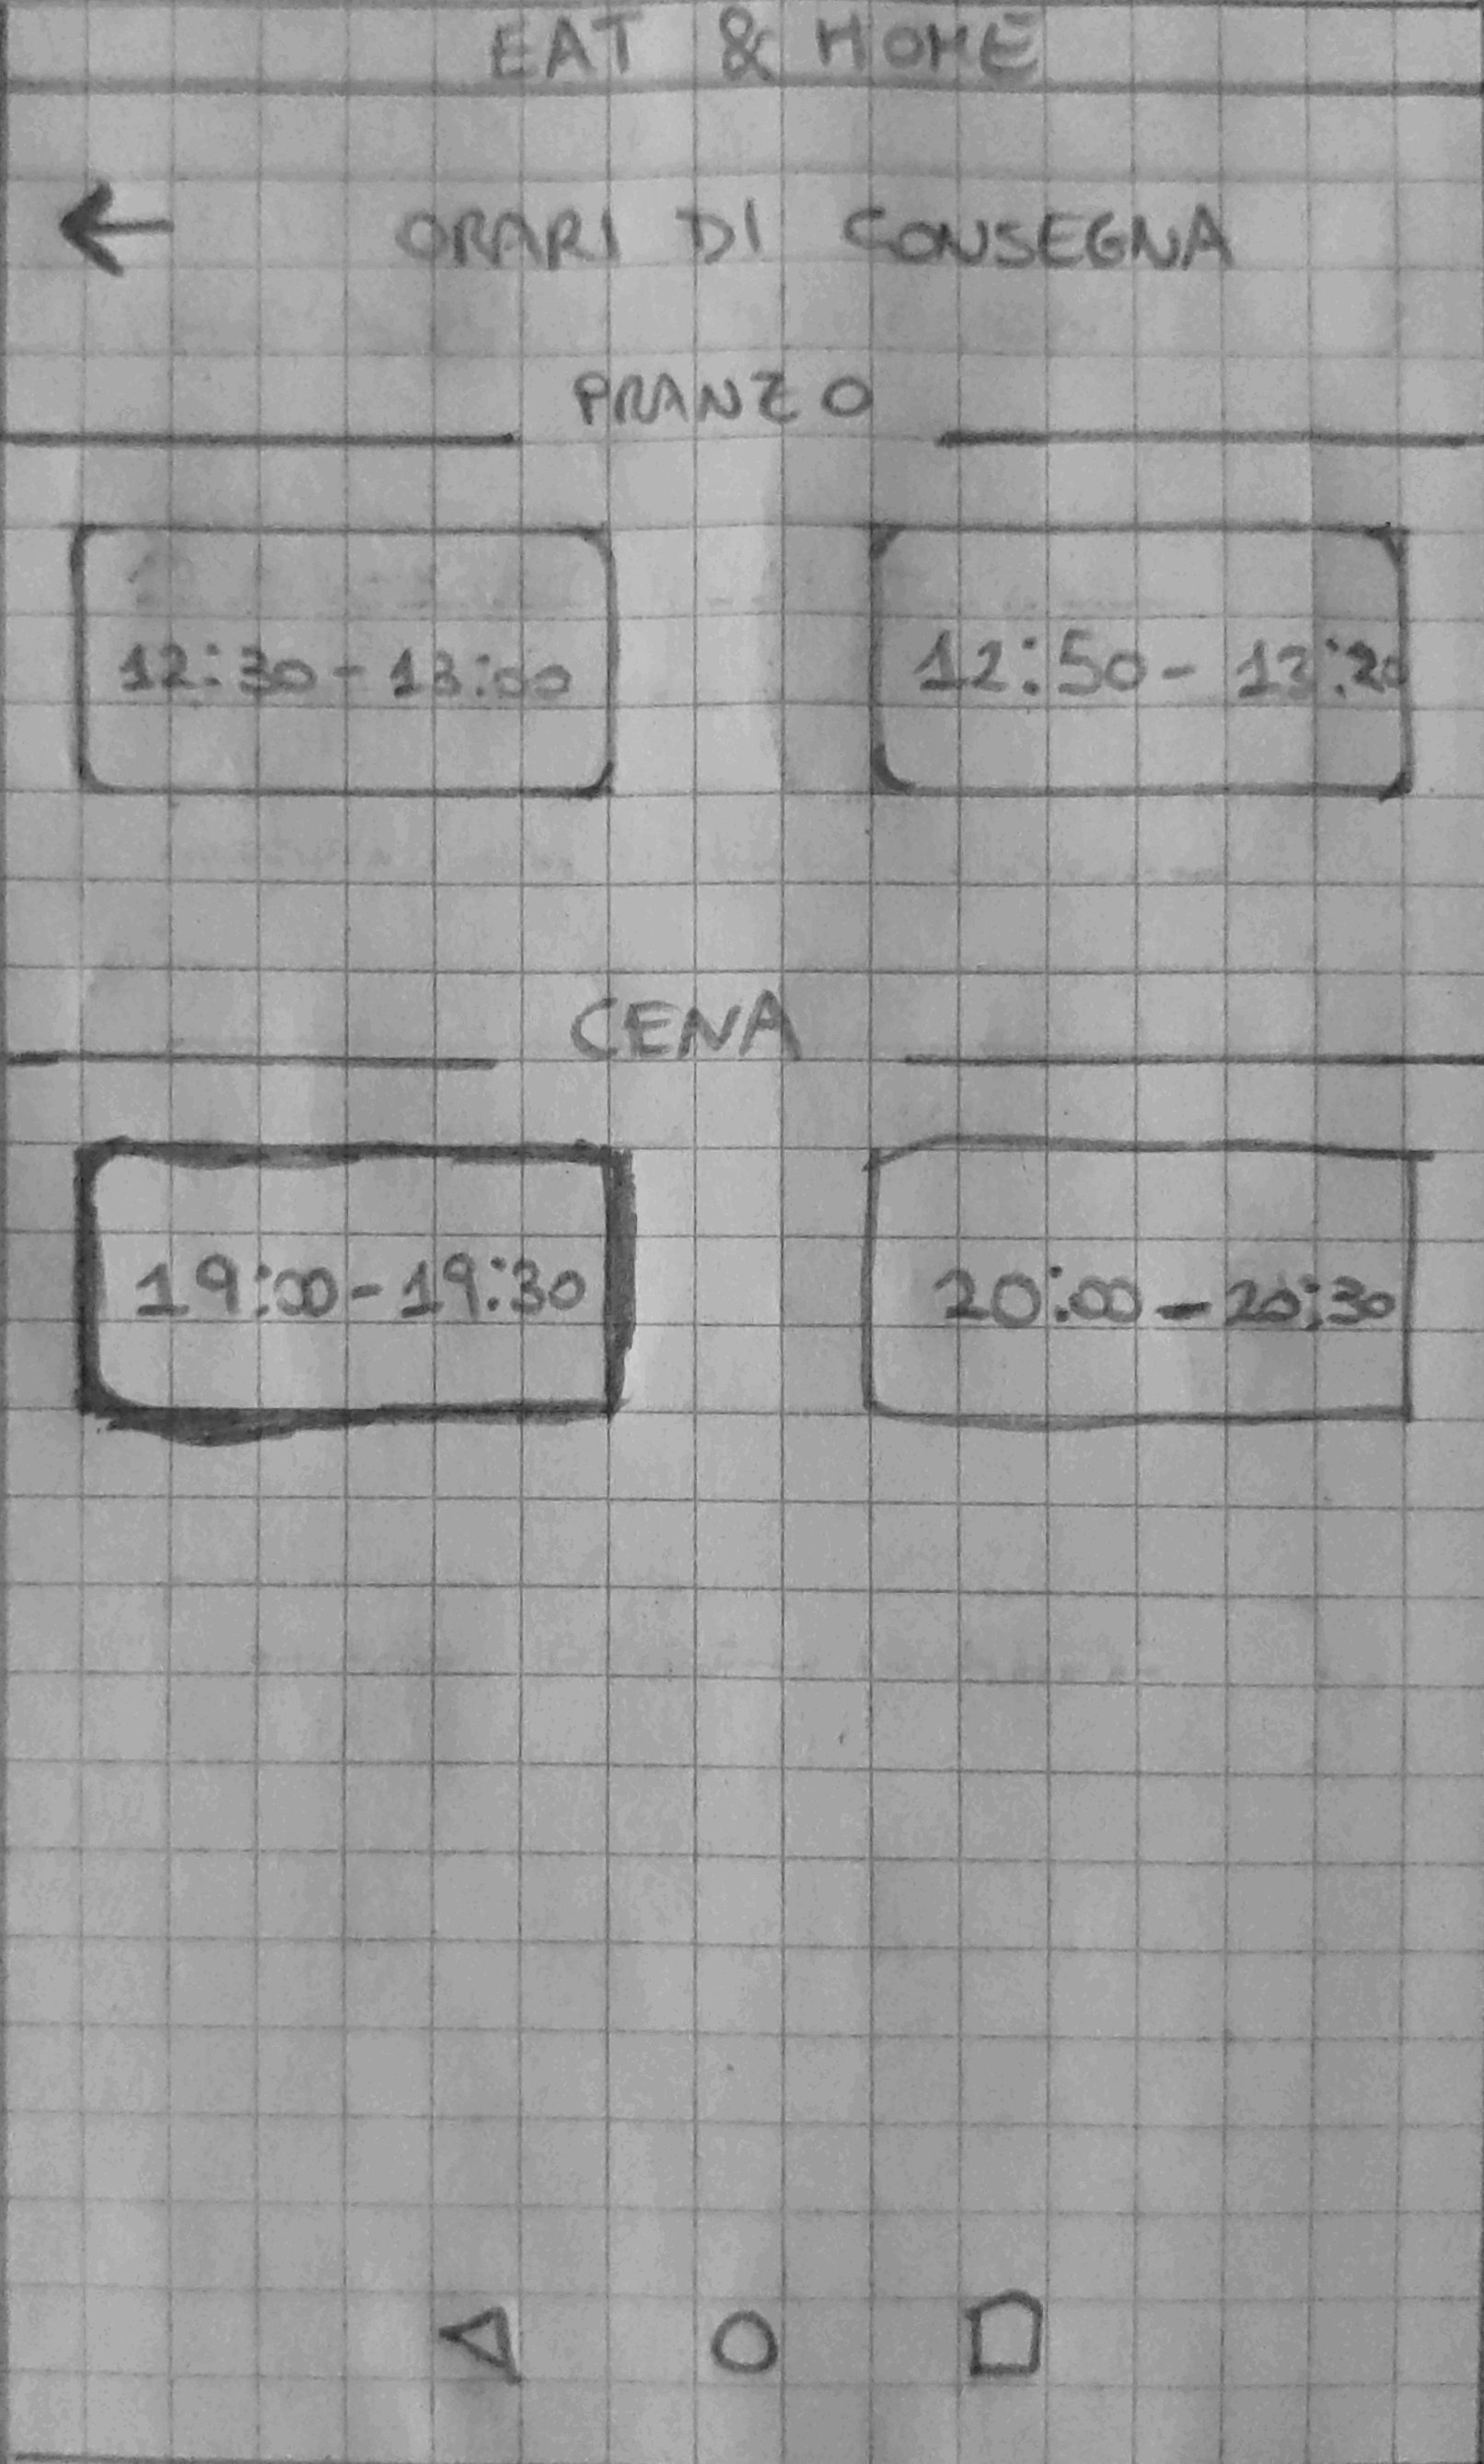 EAT & HOME
ORARI DI CONSEGNA
PRANZO
12:30-13:00
12:50-13:20
CENA
19:00-19:30
20:00-20:30